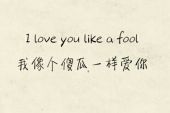 I love you like a fool
我像个傻瓜,一样爱你